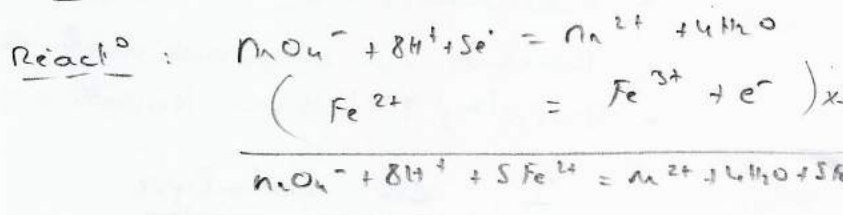 Réactº : MnO4⁻ + 8H⁺ + 5e⁻ = Mn²⁺ + 4H2O
( Fe²⁺ = Fe³⁺ + e⁻ ) x
MnO4⁻ + 8H⁺ + 5Fe²⁺ = Mn²⁺ + 4H2O + 5F